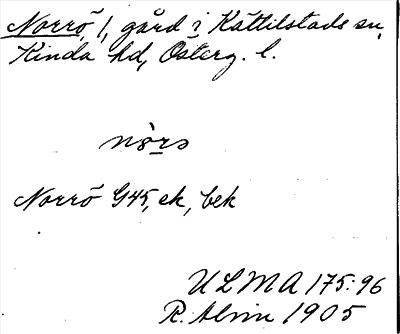 Norrö 1, gård i Kättilstads sn,
Kinda hd, Österg. l.
Norrö G45, ek, bek
ULMA 175:96
R. Alvin 1905